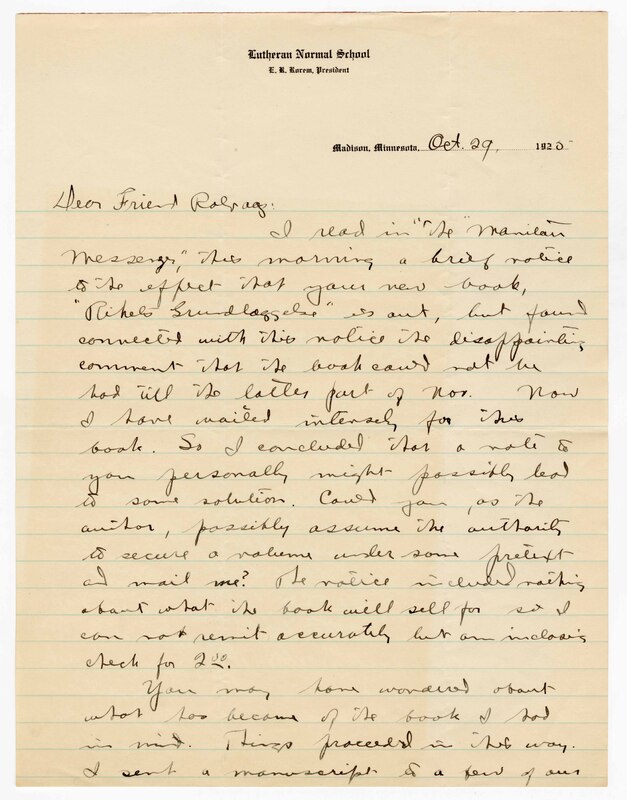 Lutheran Normal School
E. R. Rorem, President
Madison, Minnesota, Oct. 29, 1925
Dear Friend Rolvaag:
I read in "the "Manitou
Messenger," this morning a brief notice
to the effect that your new book,
"Rikets Grundlæggelse" is out, but found
connected with this notice the disappointing
comment that the book could not be
had till the latter part of Nov. Now
I have waited intensely for this
book. So I concluded that a note to
you personally might possibly lead
to some solution. Could you, as the
author, possibly assume the authority
to secure a volume under some pretext
and mail me? The notice included nothing
about what the book will sell for so I
can not remit accurately but am inclosing
check for 2.00.
You may have wondered about
what has become of the book I had
in mind. Things proceeded in this way.
I sent a manuscript to a few of our